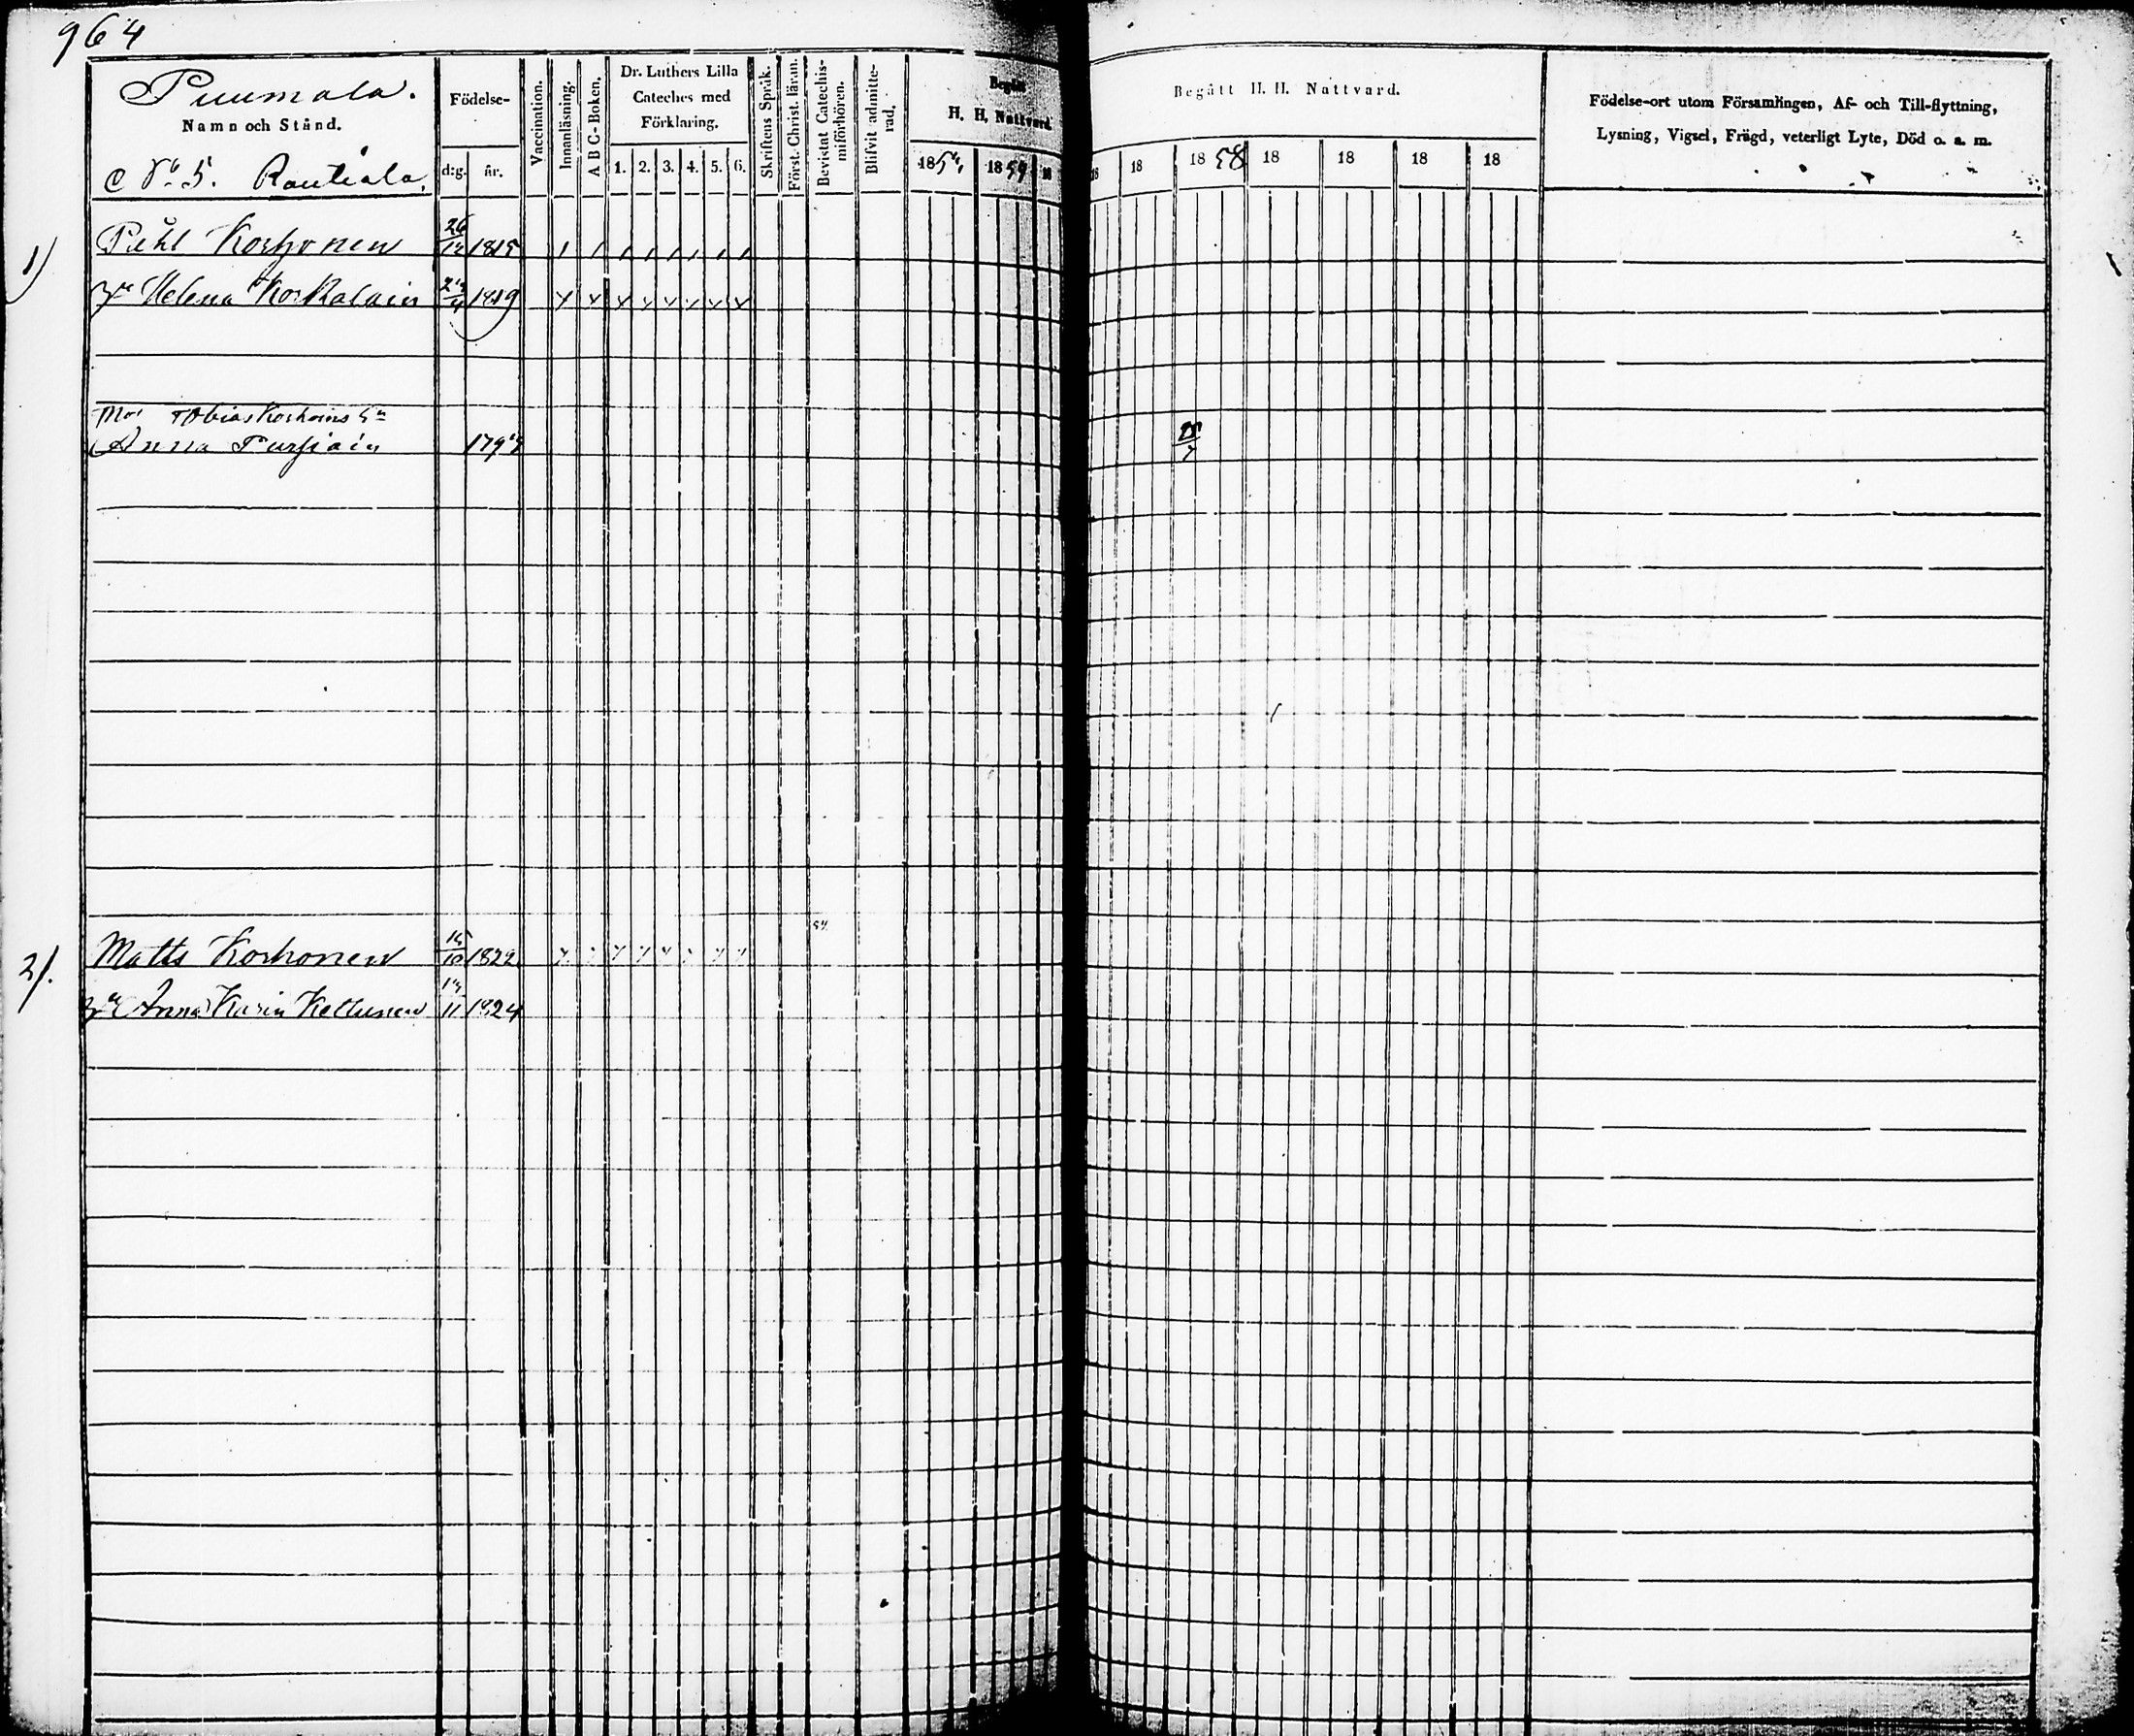 964
Puumala.
Namn och Stånd.
Nº 5. Rautiala.
Födelse-
d:g. år.
Vaccination.
Innanläsning.
A B C-Boken.
Dr. Luthers Lilla
Cateches med
Förklaring.
1. 2. 3. 4. 5. 6.
Skriftens Språk.
Först. Christ. läran.
Bevistat Catechis-
miförhören.
Blifvit admitte-
rad.
Begått
H. H. Nattvard.
18 1859 18
Begått H. H. Nattvard.
18 18 1858 18 18 18 18
Födelse-ort utom Församlingen, Af- och Till-flyttning,
Lysning, Vigsel, Frägd, veterligt Lyte, Död o. a. m.
1) Påhl Korhonen 26/12 1815
Helena Korkalain 1819
Tobias Korhoins
Anna
2/. Matts Korhonen 15/10 1822
Anna Karin Kettunen 11 1824